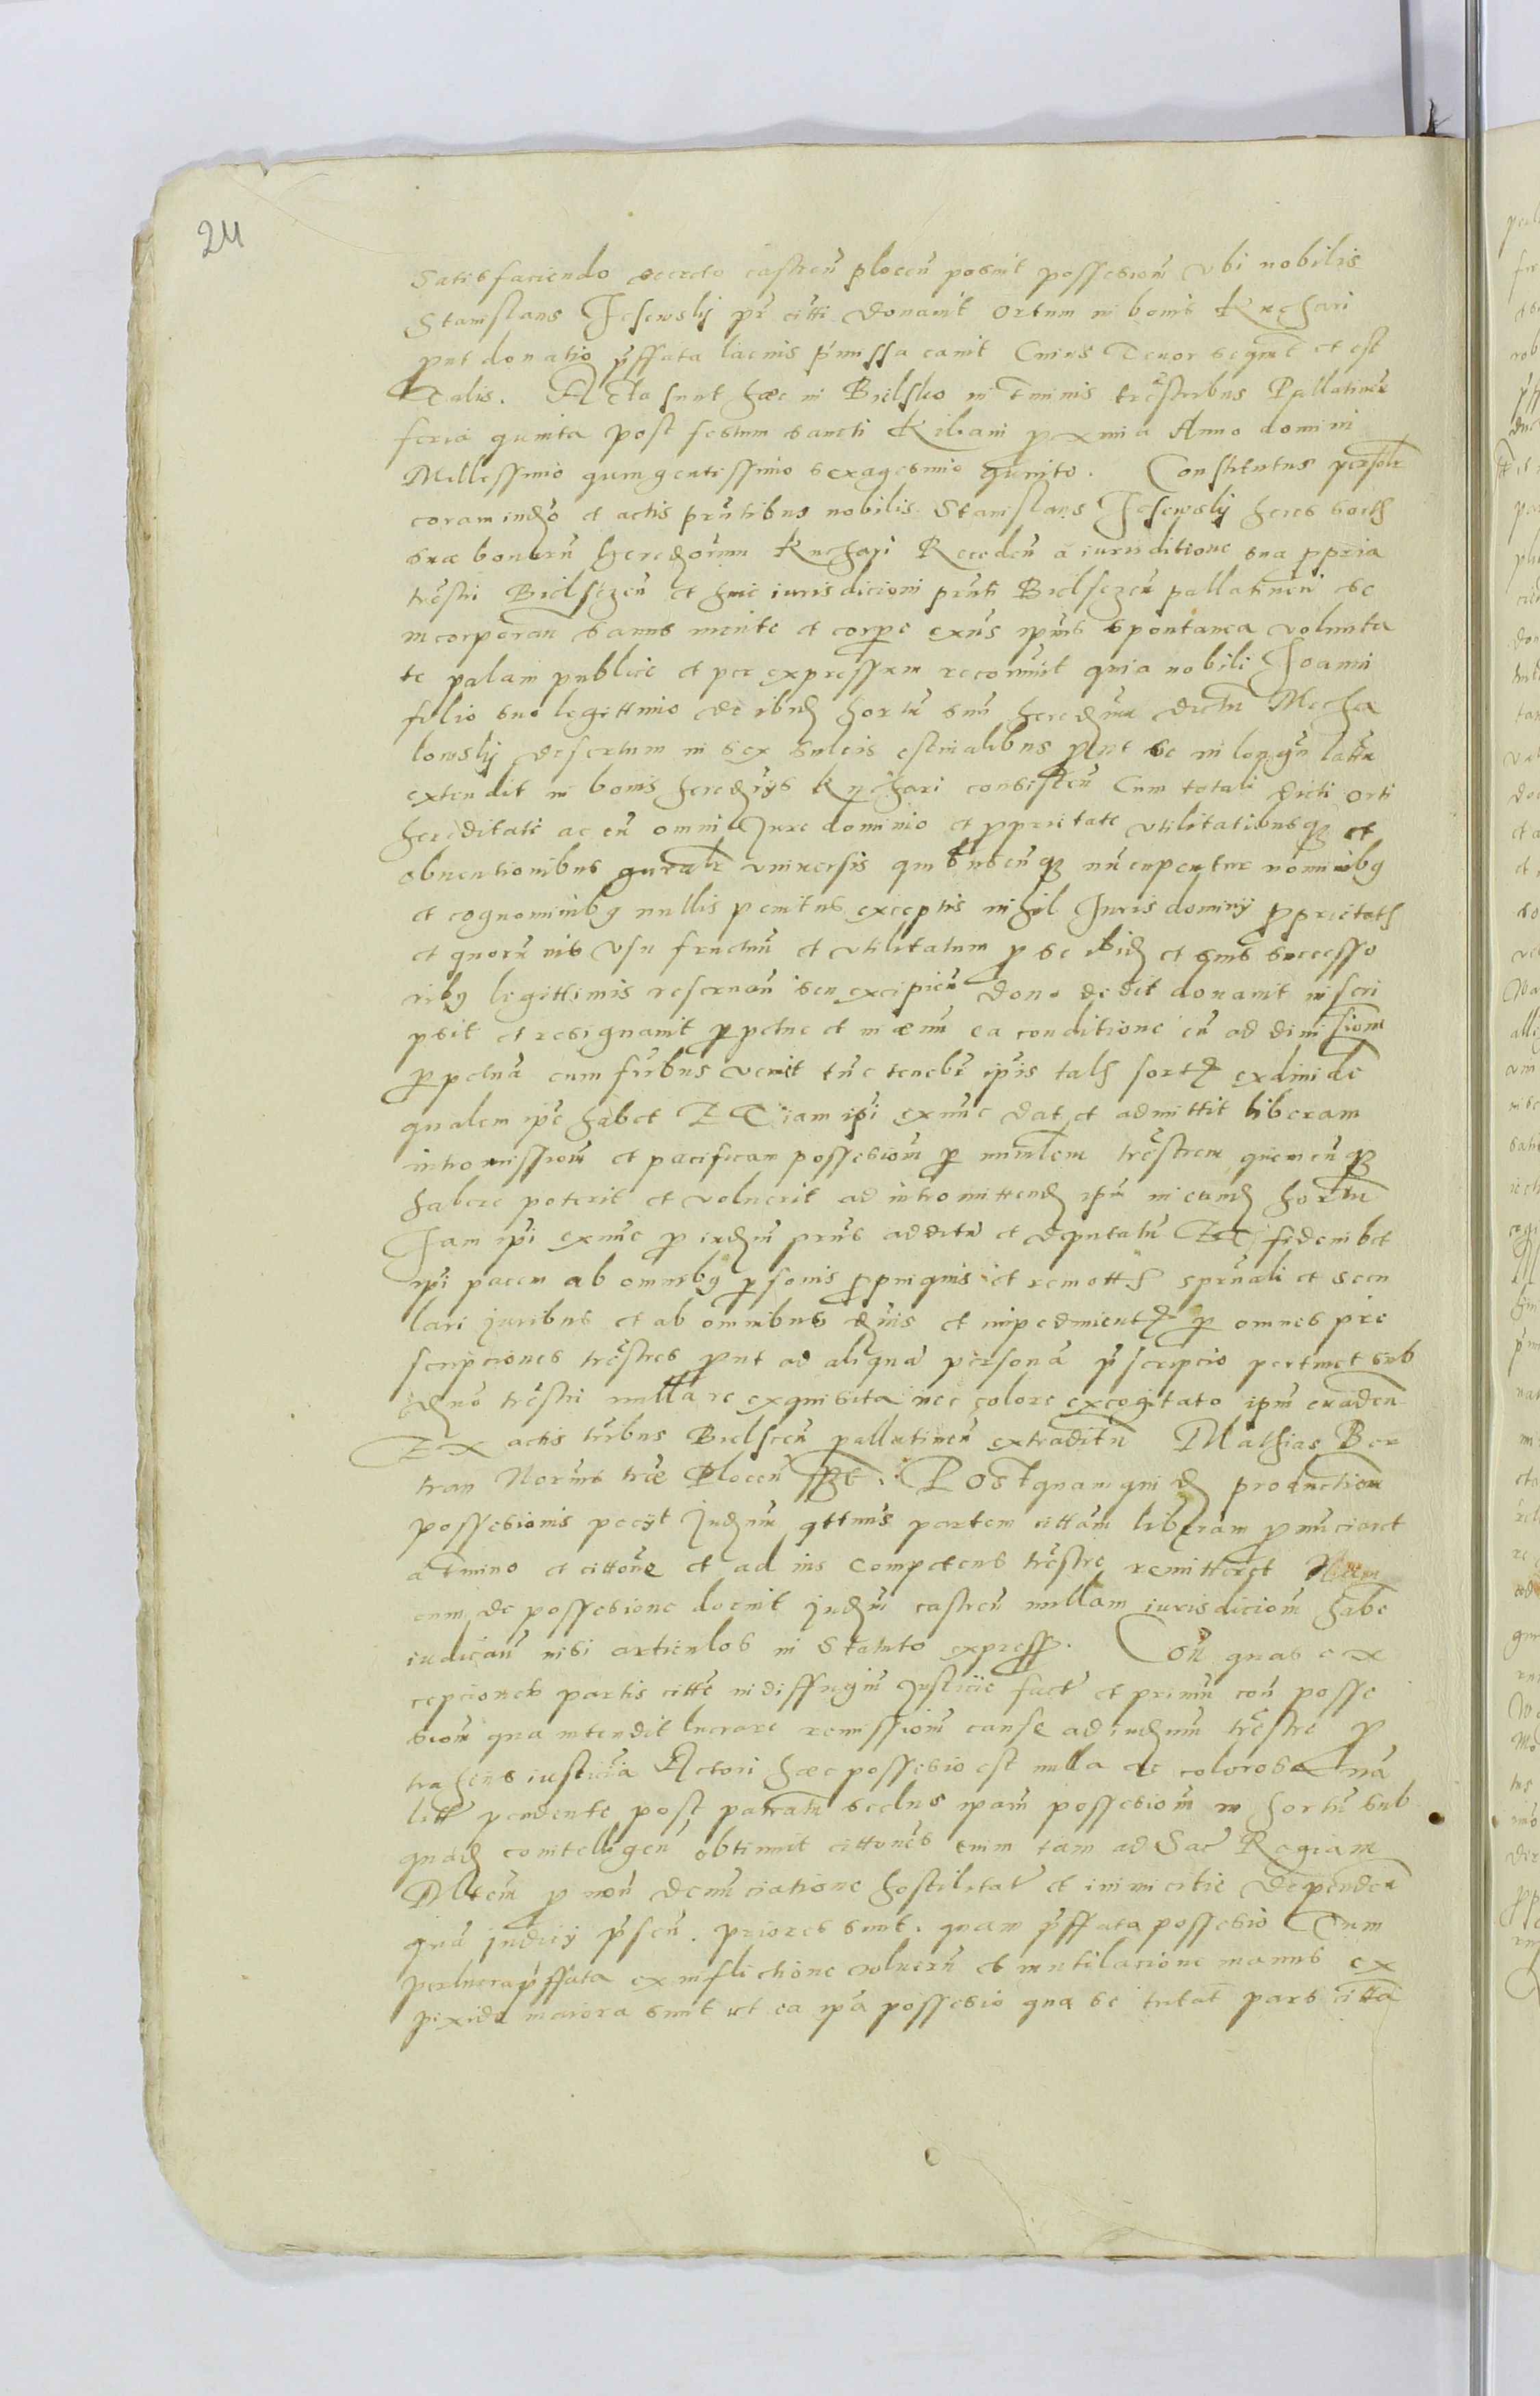 211
Satisfaciendo decreto castren plocen posuit possesiom vbi nobilis
Stanislaus Jesewsky pr citti donauit ortum in bonis Kuchari
put donatio pffata lacius pmissa canit Cuius Tenor sequit et est
Talis. Acta sunt hæc in Bielsko in tminis trestribus Pallatinen
feria quinta post festum sancti Kiliani proxima Anno domini
Millessimo quingentissimo sexagesimo quinto. Constitutus personlr
coram iudo et actis pntibus nobilis Stanislaus Jesewsky heres sortis
suæ bonorum heredorum Kuchari Receden a iurisditione sua ppria
trestri Bielsczen et huic iurisdicioni pnti Bielsczen pallatineni se
incorporan sanus mente et corpe exns ipius spontanea volunta
te palam publice et per expressum recognuit quia nobili Joanni
filio suo legittimo de ibid hortu suu heredium dictu Mecha
lowsky desertum in sex sulcis estiualibus put se in longu lattu
extendit in bonis heredys Kuchari consisten Cum totali dicti orti
hereditate ac cu omni Jure dominio et pprietate vtilitatibusq et
obuentionibus gnralr vniuersis quibuscunq nuncupentur nominibq
et cognominibq nullis penitus exceptis nihil Juris dominy pprietats
et quoru uis vsu fructuu et vtilitatum p se ibid et suis successo
ribq legittimis reseruan seu excipien dono dedit donauit inscri
psit et resignauit ppetue et in æuu ea conditione cu ad diuisione
ppetua cum fribus venit tuc tenebr ipis tals sort exdiuide
qualem ipe habet ET iam ipi exnunc dat et admittit liberam
intromissiom et pacificam possesiom p minlem trestrem quemcunq
habere poterit et voluerit ad intromittend ipu in eund hortu
Jam ipi exnunc p iudiu pns additu et deputatu Et fideiubet
ipi pacem ab omnibq psonis propinquis et remotts sprnali et secu
lari juribus et ab omnibus et impedimient p omnes pre
scripciones trestres put ad aliqua persona pscripcio pertinet sub
trestri nulla re exquisita nec colore excogitato ipm euaden
Ex actis tribus Bielscen pallatinen extraditu Mathias Ber
tran Norius træ Plocen Postquam quid production
possesionis pecyt Judium qttnus partem cittam liberam pnunciaret
a tmino et cittone et ad ius competens trestre remitteret
cum de possesione docuit judiu castren nullam iurisdiciom habe
iudican nisi articulos in Statuto express. Con quas ex
cepciones partis citte in diffugiu justicie fact et primu con posse
siom qua intendit lucrare remissiom cause ad iudium trestre p
trahens iusticia Actori hæc possesio est nulla et colorosa na
litt pendente post patratu scelus ipam possesiom in hortu sub
quad conitelligen obtinuit cittones enim tam ad Sac Regiam
Mtem p non denunciatione hostilitat et inimicitie dependen
qua judicy psen. priores sunt. quam pffata possesio Tum
perlucra pffata ex inflictione vulneru et mutilacione manus ex
pixide maiora sunt ut ea ipa possesio qua se tutat pars citta